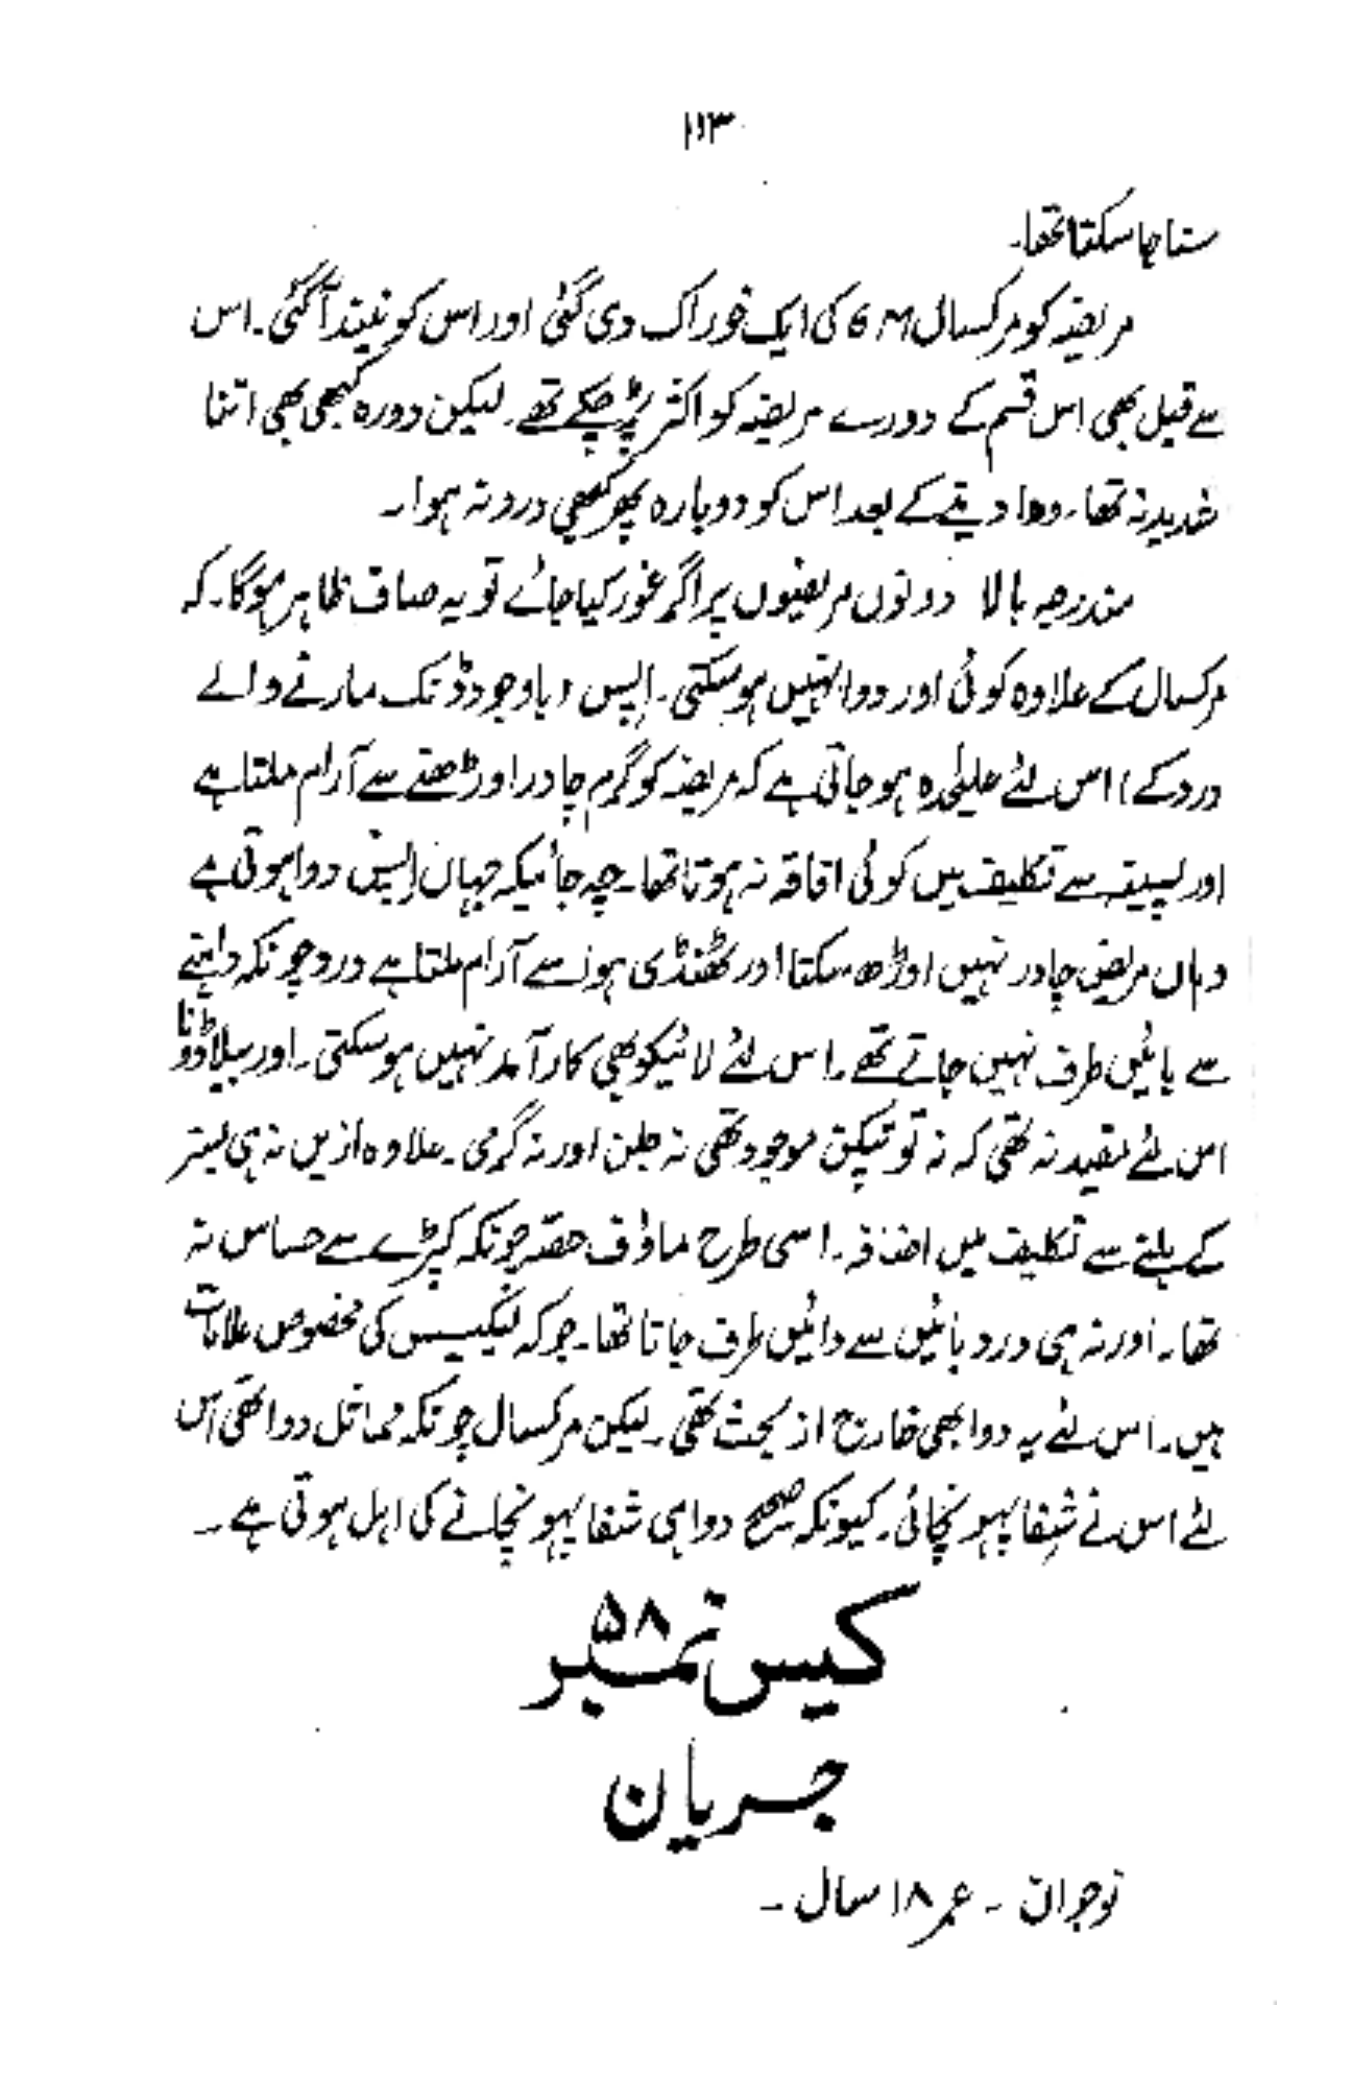 ۱۱۳
سنا جا سکتا تھا۔
مریضہ کو مرکسال 6M کی ایک خوراک دی گئی اور اس کو نیند آ گئی۔ اس
سے قبل بھی اس قسم کے دورے مریضہ کو اکثر پڑ چکے تھے۔ لیکن دورہ کبھی بھی اتنا
شدید نہ تھا۔ دوا دینے کے بعد اس کو دوبارہ پھر کبھی درد نہ ہوا۔
مندرجہ بالا دونوں مریضوں پر اگر غور کیا جائے تو یہ صاف ظاہر ہوگا۔ کہ
مرکسال کے علاوہ کوئی اور دوا نہیں ہو سکتی۔ اپس (باوجود ڈنک مارنے والے
درد کے) اس لئے علیحدہ ہو جاتی ہے کہ مریضہ کو گرم چادر اوڑھنے سے آرام ملتا ہے
اور پسینہ سے تکلیف میں کوئی افاقہ نہ ہوتا تھا۔ چہ جائیکہ جہاں اپس دوا ہوتی ہے
وہاں مریض چادر نہیں اوڑھ سکتا اور ٹھنڈی ہوا سے آرام ملتا ہے درد چونکہ داہنے
سے بائیں طرف نہیں جاتے تھے۔ اس لئے لائیکو بھی کارآمد نہیں ہو سکتی۔ اور بیلاڈونا
اس لئے مفید نہ تھی کہ نہ تو تپکن موجود تھی نہ جلن اور نہ گرمی۔ علاوہ ازیں نہ ہی بستر
کے ہلنے سے تکلیف میں اضافہ۔ اسی طرح ماؤف حصہ چونکہ کپڑے سے حساس نہ
تھا۔ اور نہ ہی درد بائیں سے دائیں طرف جاتا تھا۔ جو کہ لیکیسس کی مخصوص علامات
ہیں۔ اس لئے یہ دوا بھی خارج از بحث تھی۔ لیکن مرکسال چونکہ مماثل دوا تھی اس
لئے اس نے شفا پہونچائی۔ کیونکہ صحیح دوا ہی شفا پہونچانے کی اہل ہوتی ہے۔
کیس نمبر ۵۸
جریان
نوجوان ۔ عمر ۱۸ سال ۔